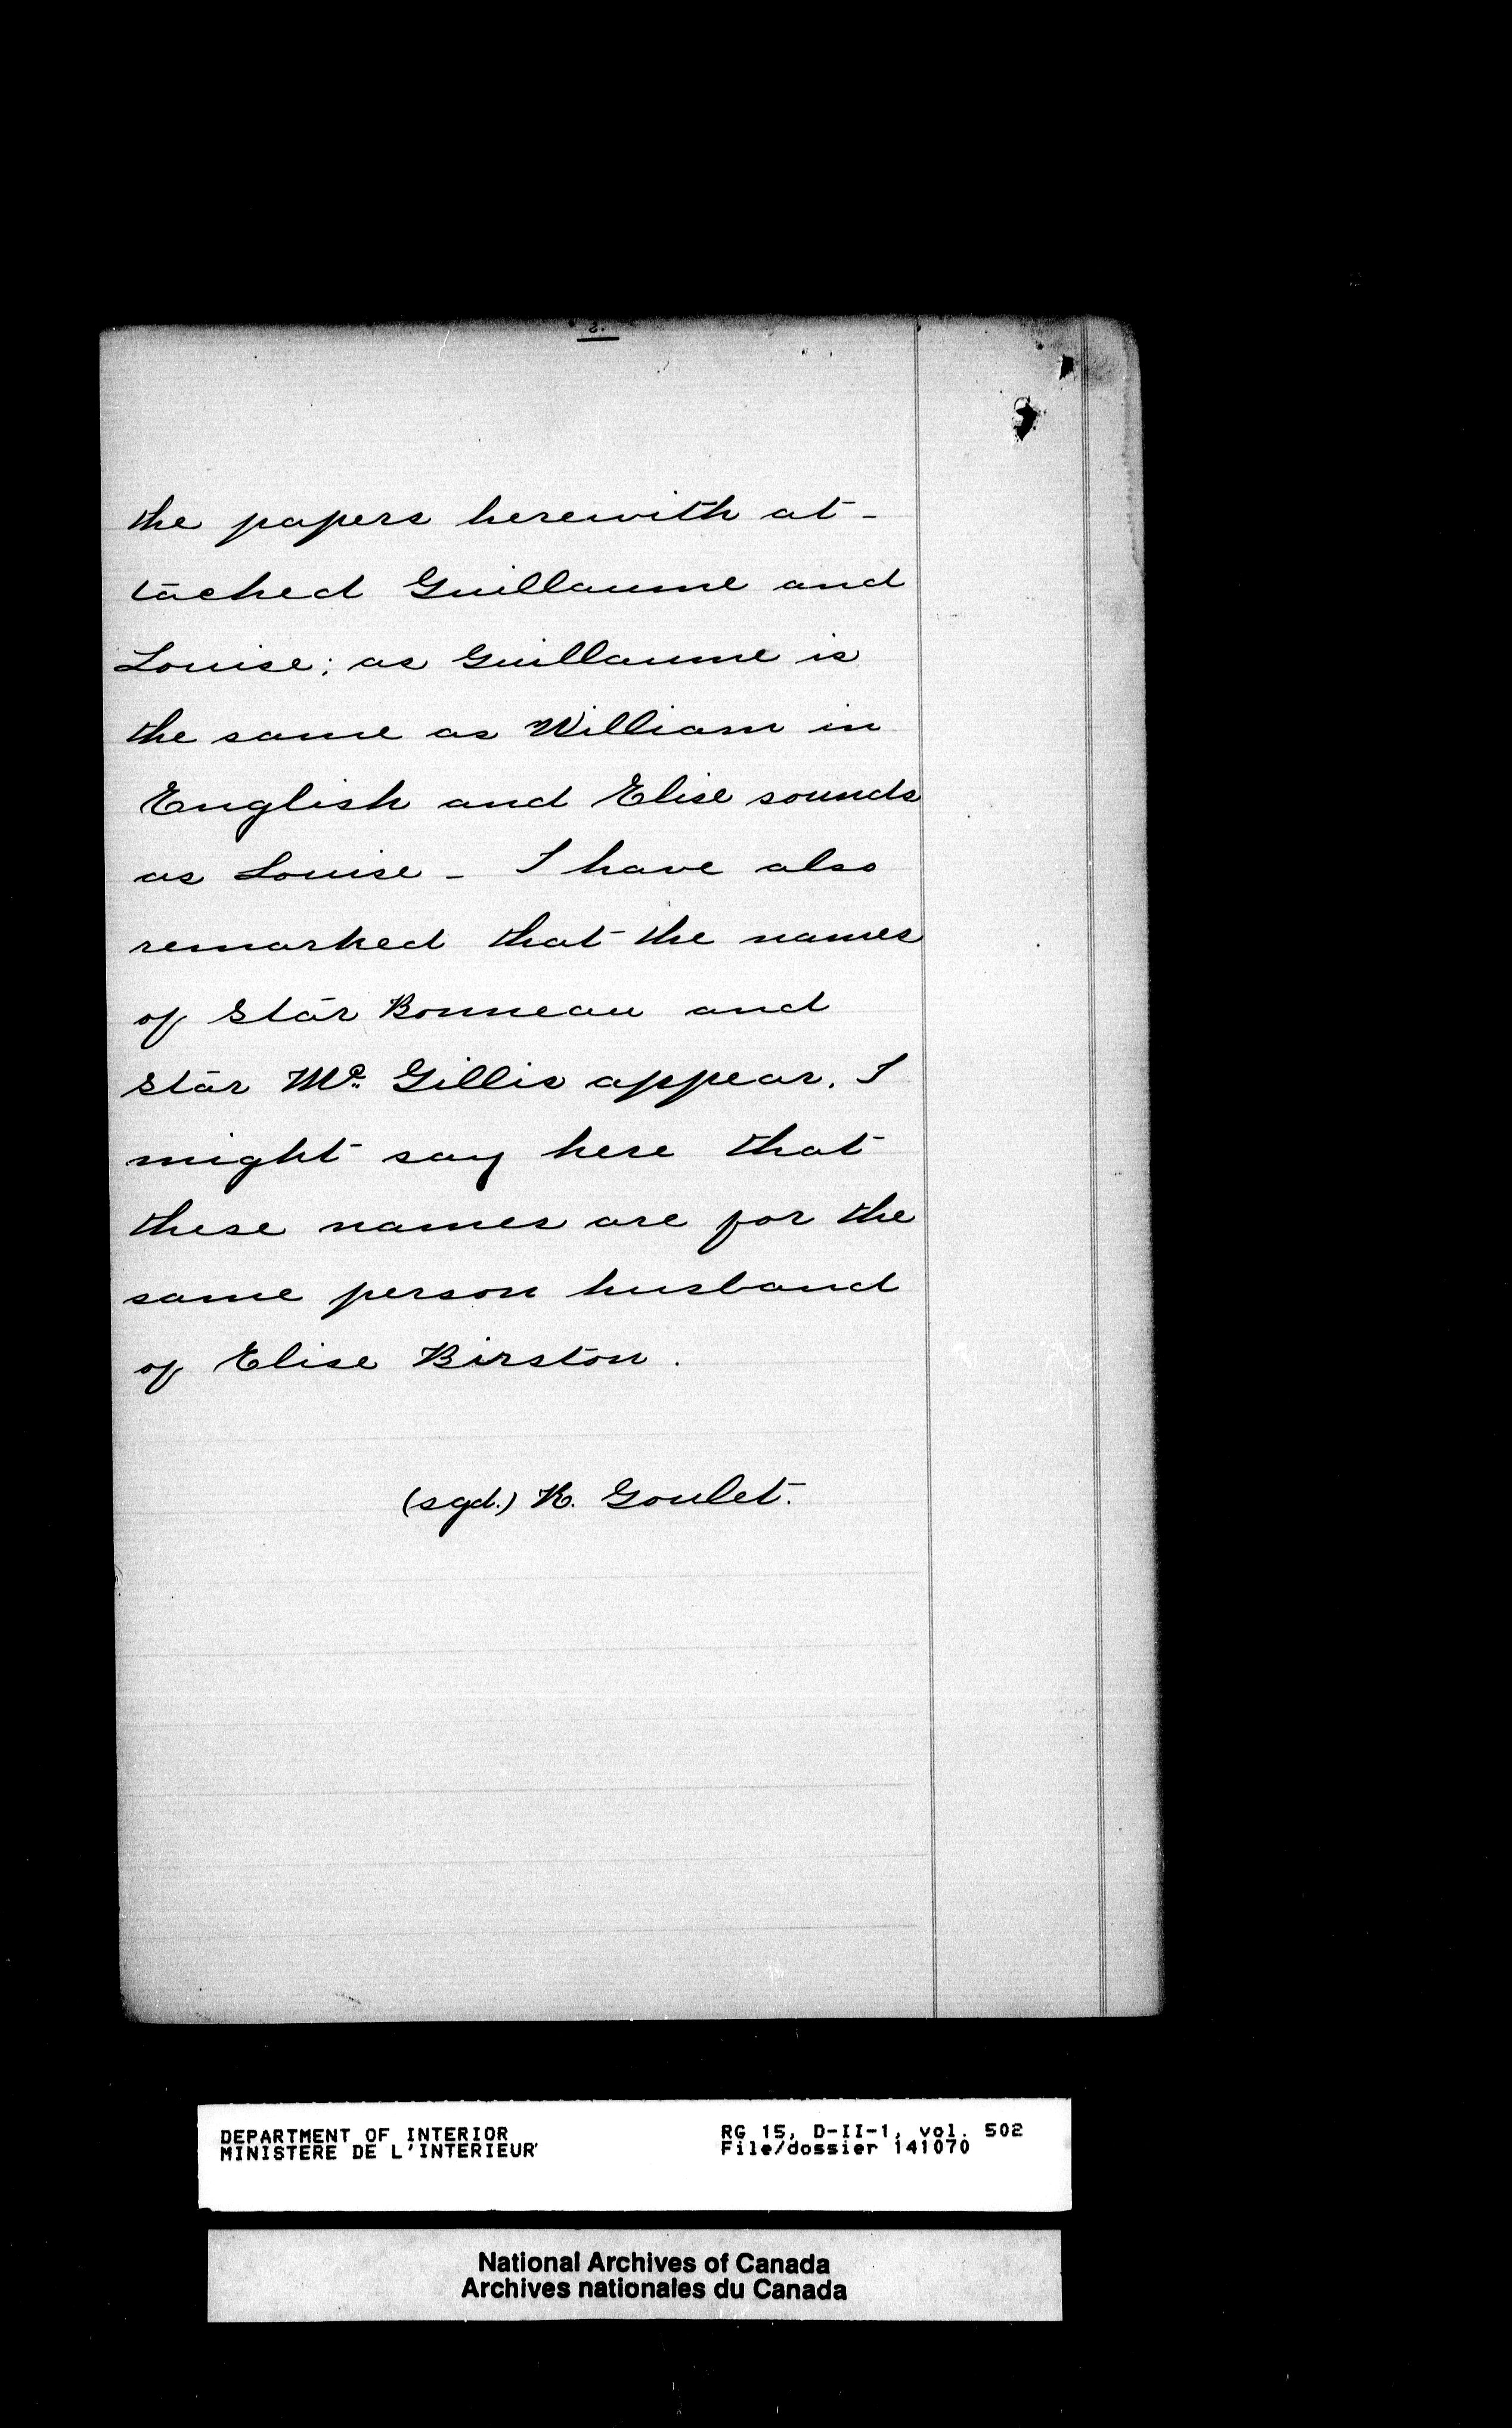 2.
the papers herewith at-
tached Guillaume and
Louise; as Guillaume is
the same as William in
English and Elise sounds
as Louise - I have also
remarked that the names
of Star Bonneau and
Star Mc. Gillis appear. I
might say here that
these names are for the
same person husband
of Elise Birston.
(sgd.) R. Goulet.
DEPARTMENT OF INTERIOR
MINISTERE DE L'INTERIEUR
RG 15, D-II-1, vol. 502
File/dossier 141070
National Archives of Canada
Archives nationales du Canada